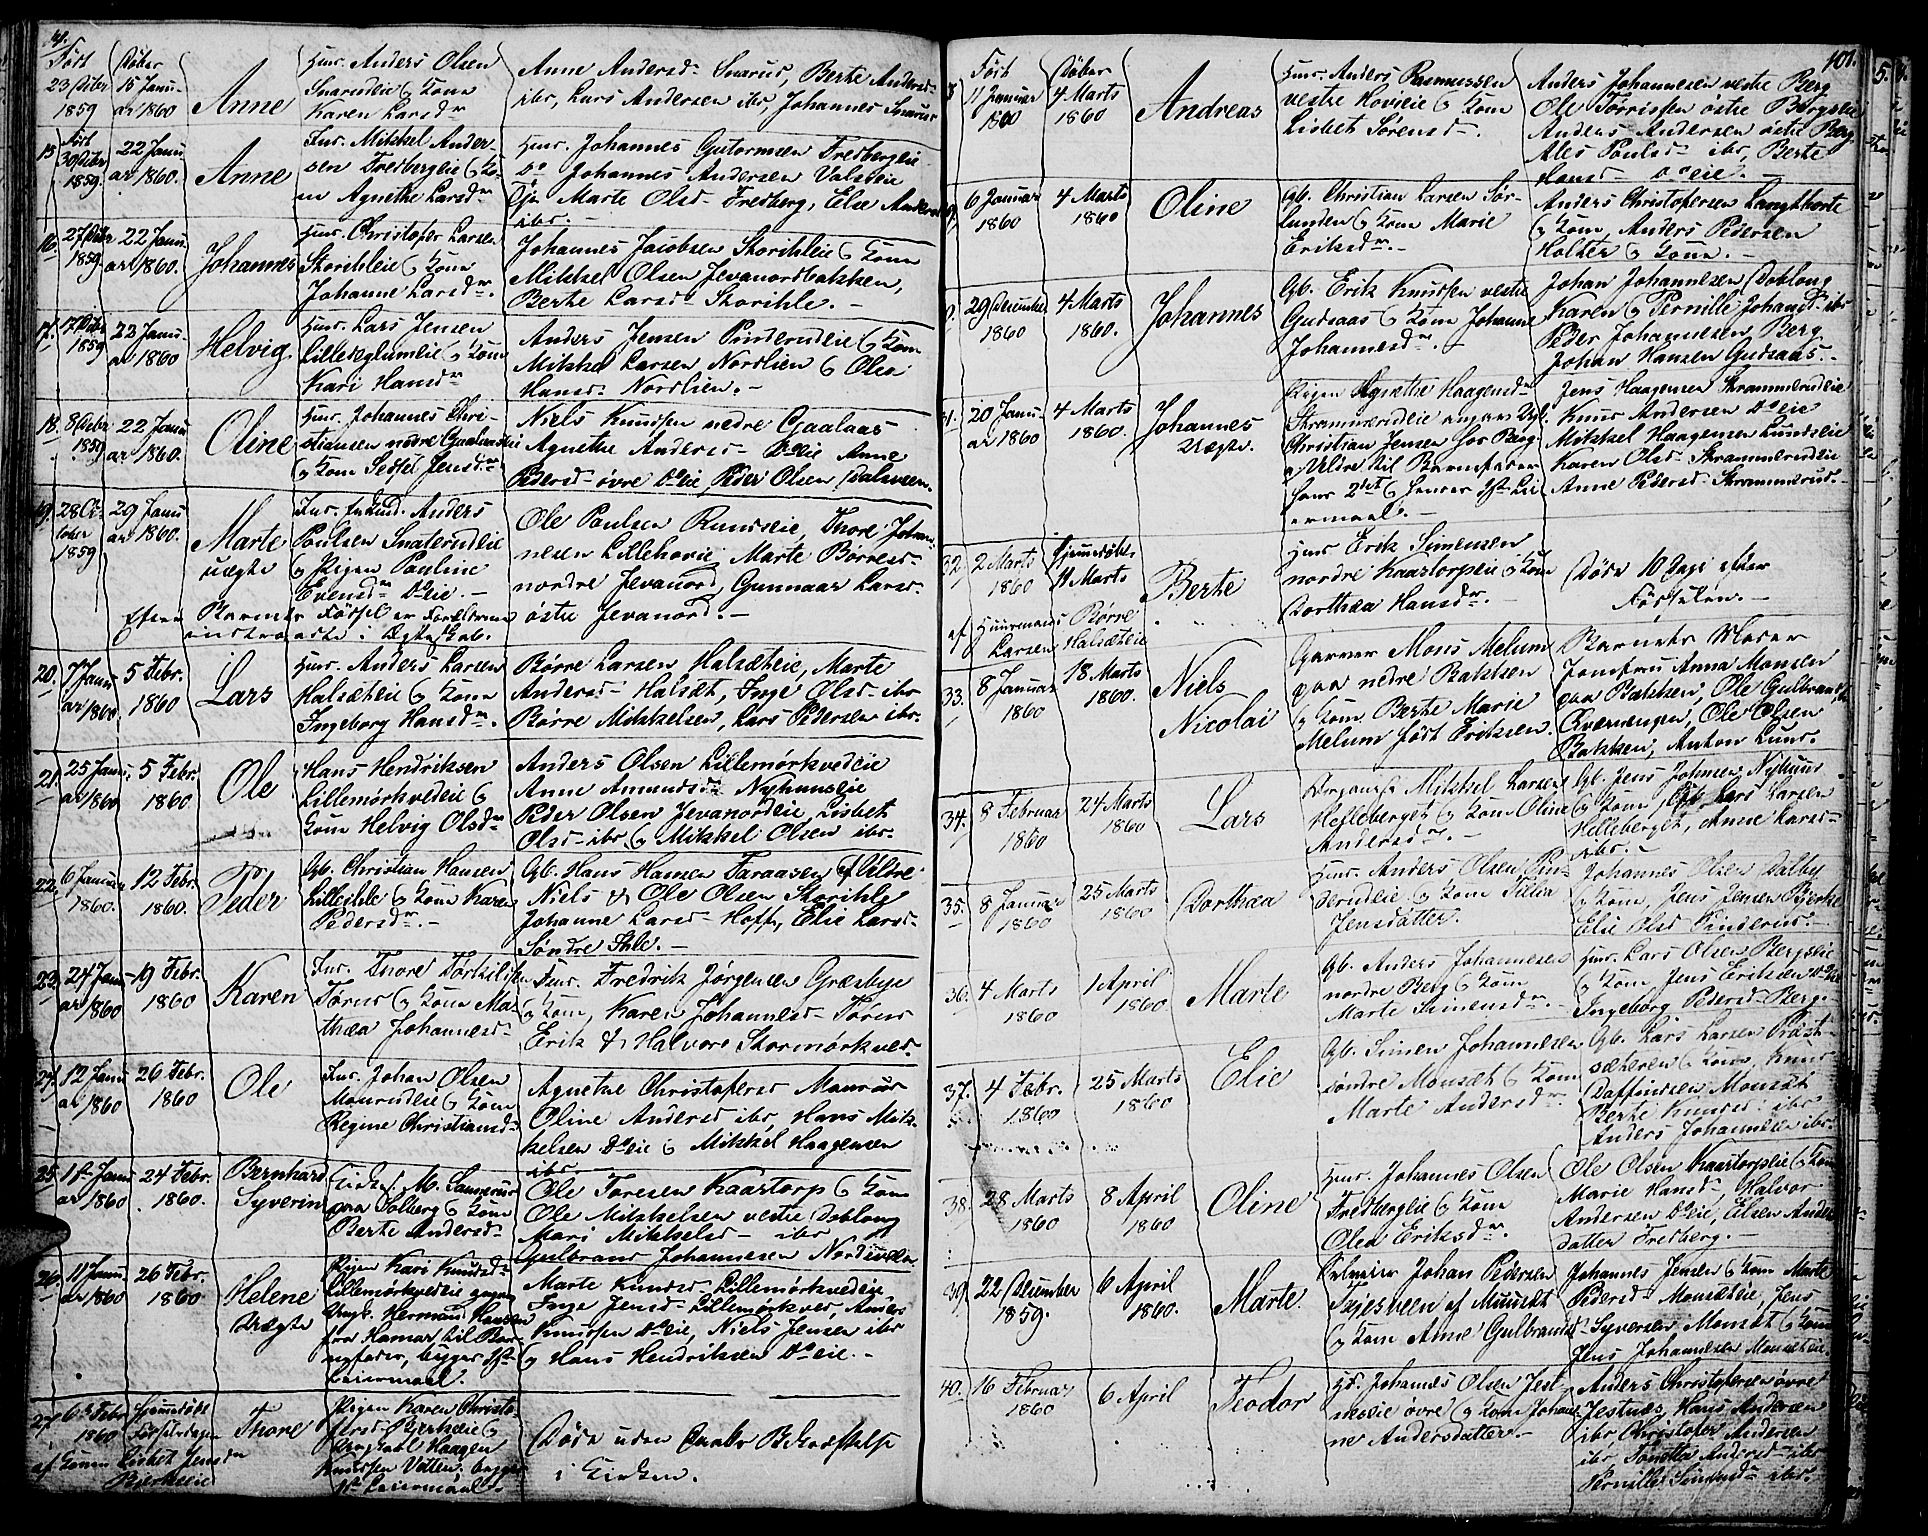 14. Født 23 Dcbr 1859
Døbt 15 Januar 1860
Anne
Huus. Anders Olsen
Snarudeie og Kone
Karen Larsdr
Anne Andersd- Snarud, Berte Andersd-
ibr, Lars Andersen ibr, Johannes Snarud
15 Født 30 Dcbr 1859.
22 Januar 1860.
Anne
Ins. Mikkel Andersen
Fredbergeie og Kone
Agnethe Larsdr
Huus. Johannes Gutormsen Fredbergeie
Do Johannes Andersen Valseie
Marte Olsd- Fredberg, Else Andersd-
ibr. -
16. 27 Dcbr 1859.
22 Januar 1860.
Johannes
Huus. Christofer Larsen
Storihleie og Kone
Johanne Larsdr.
Johannes Jacobsen Storihleie og Kone
Mikkel Olsen Jevanordbakken,
Berte Larsd- Storihle. -
17. 17 Dcbr 1859
22 Januar 1860
Helvig
Huus. Lars Jensen
og Kone
Kari Hansdr
Anders Jensen Pinderudeie og Kone
Mikkel Larsen Nordlien og Olea
Hansd- Nordlien. -
18. 8 Dcbr 1859
22 Januar 1860.
Oline
Huus. Johannes Christiansen
nedre Gaalaaseie
og Kone Sidsel Jensdr
Niels Knudsen nedre Gaalaas
Agnethe Andersd- Do eie Anne
Pedersd- øvre Do eie, Peder Olsen Dalsveen.
19. 28 October 1859
29 Januar 1860.
Marte
uægte
Anders
Paulsen Snaterudeie
og Pigen Pauline
Evensdr Do eie. -
Ole Paulsen Rundseie, Thore Johannesen
Lillehovie, Marte Børresd-
nordre Jevanord, Gunnaar Larsd-
østre Jevanord. -
Efter Barnets Fødsel er Forældrene
indtraadte i Ægteskab.
20. 7 Januar 1860.
5 Febr. 1860
Lars
Huus. Anders Larsen
Halsæteie og Kone
Ingeborg Hansdr.
Børre Larsen Halsæteie, Marte
Andersd- Halsæt, Inge Olsd- ibr
Børre Mikkelsen, Lars Pedersen ibr.
21. 25 Januar 1860
5 Febr. 1860.
Ole
Hans Hendriksen
Lillemørkvedeie og
Kone Helvig Olsdr
Anders Olsen Lillemørkvedeie
Anne Amundsdr Nyhuuseie
Peder Olsen Jevanordeie, Lisbet
Olsd- ibr, og Mikkel Olsen ibr.
22. 6 Januar 1860.
12 Febr. 1860.
Peder
Gb. Christian Hansen
Lilleihle og Kone Karen
Pedersdr. -
Gb. Hans Hansen Faraasen af Vildre
Niels & Ole Olsen Storihle
Johanne Larsd- Hoff, Elie Larsd-
Søndre Ihle. -
23. 24 Januar 1860
19 Febr. 1860
Karen
Ins. Thore Torkilsen
Torud og Kone Mathea
Johannesd-
Ins. Fredrik Jørgensen Græsbye
og Kone, Karen Johannesd- Torud
Erik & Halvore Stormørkved.
24. 12 Januar 1860
26 Febr. 1860
Ole
Ins. Johan Olsen
Maurudeie og Kone
Regine Christiansdr
Agnethe Christofersd- Maurud
Oline Andersd- ibr, Hans Mikkelsen
Do eie og Mikkel Haagensen
ibr.
25. Januar 1860
24 Febr. 1860.
Bernhard
Syverin
M. Lauserud
paa Solberg og Kone
Berte Andersd-
Ole Toresen Kaastorp og Kone
Ole Mikkelsen vestre Døhlong
Mari Mikkelsd- ibr
Gulbrand Johannesen Nordsveen
26. 11 Januar 1860
26 Febr. 1860
Helene
Uægte
Pigen Kari Knudsdr
Lillemørkvedeie angav
Ungk. Herman Hansen
fra Hamar til Barnefader,
begges 1ste
Leiermaal.
Marte Knudsd- Lillemørkvedeie,
Inge Jensd- Lillemørkved, Anders
Knudsen Do eie, Niels Jensen ibr
og Hans Hendriksen Do eie. -
27. 6te Febr 1860
Hjemmedøbt Fødselsdagen
af Konen Lisbet Jensdr Bjerkeeie
Thore
Pigen Karen Christofersd-
Bjerkeeie og
Ungkarl Haagen
Knudsen Vetten, begges
1ste Leiermaal.
Døde uden Daabs Bekræftelse
i Kirken.
101.
Født 11 Januar 1860
Døbt 4 Marts 1860
Andreas
Huus. Anders Rasmussen
vestre Hovieie og Kone
Lisbet Sørensd-.
Anders Johannesen vestre Berg
Ole Torrissen østre Bergseie
Anders Andersen østre Berg
Ales Paulsd- ibr, Berte
Hansd- Do eie. -
6 Januar 1860
4 Marts 1860
Oline
Gb. Christian Larsen Sørlunden
og Kone Marie
Eriksdr. -
Anders Christofersen Langthorte
og Kone, Anders Pedersen
Holter og Kone. -
29 December 1860
4 Marts 1860.
Johannes
Gb. Erik Knudsen vestre
Gudsaas og Kone Johanne
Johannesdr. -
Johan Johannesen Døhlong
Karen og Pernille Johansdr ibr
Peder Johannesen Berg
Johan Hansen Gudsaas. -
31. 20 Januar 1860
4 Marts 1860.
Johannes
Uægte.
Pigen Agnethe Haagensdr
Skrammerudeie angav Ungk.
Christian Jensen
Vldre til Barnefader
hans 2det og hendes 1ste Leiermaal. -
Jens Haagensen Skrammerudeie
Knud Andersen Do eie
Mikkel Haagensen Lundseie
Karen Olsd- Skrammerudeie
Anne Pedersd- Skrammerud.
32. 2 Marts 1860
Hjemmedøbt
11 Marts
af Huusmand Børre
Larsen Halsæteie
Berte
Huus Erik Simensen
nordre Kaastorpeie og Kone
Dorthea Hansdr. -
Døde 10 Dage efter
Fødselen. -
33. 8 Januar 1860
18 Marts 1860.
Niels
Nicolai
Garver Mons Melum
paa nedre Bakken
og Kone Berte Marie
Melum født Eriksen.
Barnets Moder
Jomfru Anna Monsen
paa Bakken, Ole Gulbrandsen
Qværnengen, Ole Olsen
Bakken, Anton Lund.
34. 8 Februar 1860
24 Marts 1860
Lars
Mikkel Larsen
Helleberget og Kone Oline
Andersdr. -
Gb. Jens Johnsen Nyhuus
og Kone, Gb. Lars Larsen
Helleberget, Anne Larsd-
ibr. -
35. 8 Januar 1860
25 Marts 1860
Dorthea
Huus. Anders Olsen Pinderudeie
og Kone
Jensdatter.
Johannes Olsen Dælby
og Kone, Jens Jensen Bjerke
Elie Olsd Pinderud. -
36. 4 Marts 1860
1 April 1860.
Marte
Gb. Anders Johannesen
nordre Berg og Kone
Marte Simensdr. -
Huus. Lars Olsen Bergseie
og Kone, Jens Eriksen
Ingeborg Pedersd- Berg. -
37. 4 Febr. 1860
25 Marts 1860
Elie
Gb. Simen Johannesen
søndre Monsæt og Kone
Marte Andersdr.
Gb. Lars Larsen Præstsæteren
og Kone, Knud
Daffinsen Monsæt
Berte Knudsd- ibr
Anders Johannesen ibr.
38. 28 Marts 1860
8 April 1860
Oline
Huus. Johannes Olsen
Fredbergeie og Kone
Olea Eriksdr.
Ole Olsen Kaastorpeie og Kone
Marie Hansd-, Halvor
Andersen Do eie, Elsen Andersdatter
Fredberg. -
39. 22 December 1859.
6 April 1860.
Marte
Johan Pedersen
Tajesveen af
og Kone Anne Gulbrandsd-
Johannes Jensen og Kone Marte
Pedersd- Monsæteie, Jens
Syversen Monsæt og Kone
Jens Johannesen Monsæteie
40. 16 Februar 1860
6 April
Teodor
Hd. Johannes Olsen Jestneseie
øvre og Kone Johanne
Andersdatter. -
Anders Christofersen øvre
Jestnæs, Hans Andersen
ibr, Christofer Andersen
ibr, Tonette Andersd- ibr
Pernille Simensdr ibr.